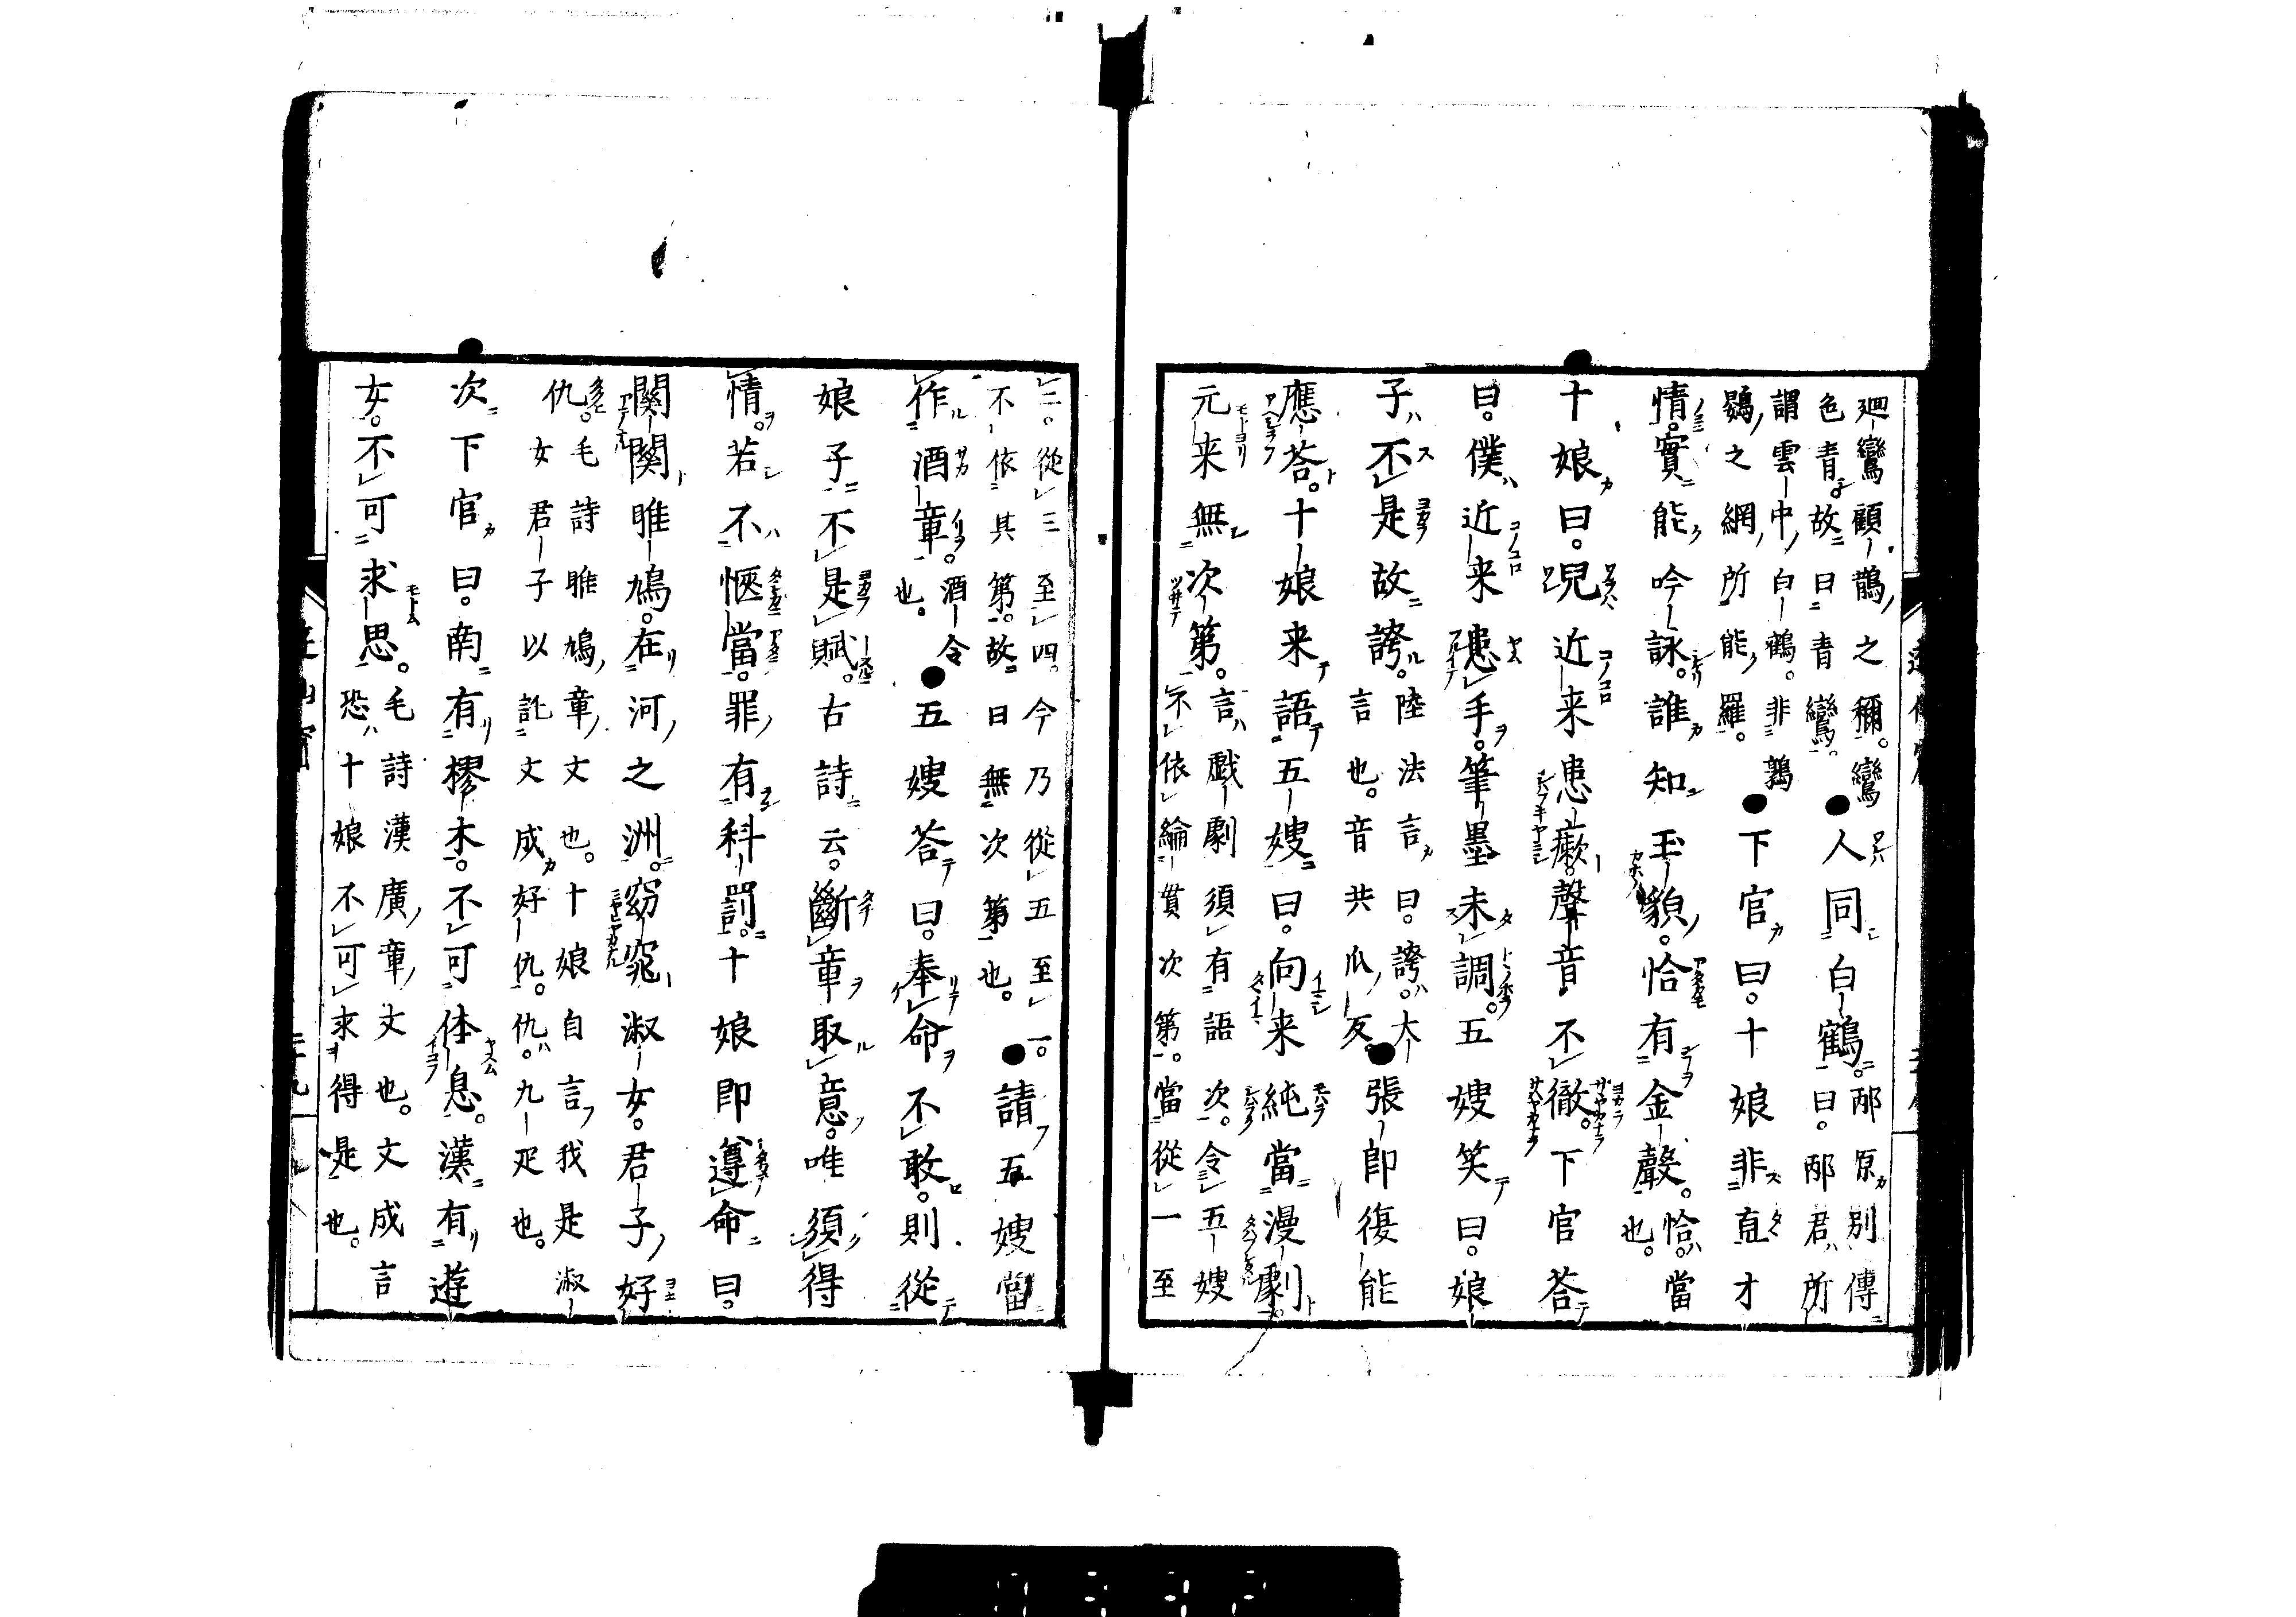 廻鸞顧鵲之禰。鸞
色青。故曰青鸞。
人同白鶴。
邴原別傳
曰。邴君所
謂雲中白鶴。非鶉
鷃之網所能羅。
下官曰。十娘非直才
情。實能吟詠。誰知玉貌。恰有金聲。
恰。當
也。
十娘曰。児近来患𤸎。聲音不徹。下官荅
曰。僕近来患手。筆墨未調。五嫂笑曰。娘
子不是故誇。
陸法言曰。誇。大
言也。音共瓜反。
張郎復能
應荅。十娘来語五嫂曰。向来純當漫劇。
元来無次第。
言戲劇須有語次。令五嫂
不依綸貫次第。當從一至
二。從三至四。今乃從五至一。
不依其第。故曰無次第也。
請五嫂當
作酒章。
酒令
也。
五嫂荅曰。奉命不敢。則從
娘子。不是賦。古詩云。斷章取意。唯須得
情。若不愜當。罪有科罰。十娘即遵命曰。
關關雎鳩。在河之洲。窈窕淑女。君子好
仇。
毛詩雎鳩章文也。十娘自言我是淑
女君子以託文成好仇。仇。九疋也。
次下官曰。南有樛木。不可休息。漢有遊
女。不可求思。
毛詩漢廣章文也。文成言
恐十娘不可求得是也。